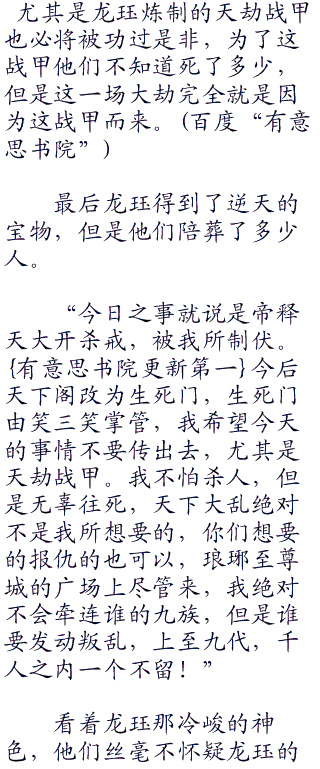 尤其是龙珏炼制的天劫战甲
也必将被功过是非，为了这
战甲他们不知道死了多少，
但是这一场大劫完全就是因
为这战甲而来。(百度“有意
思书院”)
最后龙珏得到了逆天的
宝物，但是他们陪葬了多少
人。
“今日之事就说是帝释
天大开杀戒，被我所制伏。
{有意思书院更新第一}今后
天下阁改为生死门，生死门
由笑三笑掌管，我希望今天
的事情不要传出去，尤其是
天劫战甲。我不怕杀人，但
是无辜往死，天下大乱绝对
不是我所想要的，你们想要
的报仇的也可以，琅琊至尊
城的广场上尽管来，我绝对
不会牵连谁的九族，但是谁
要发动叛乱，上至九代，千
人之内一个不留！”
看着龙珏那冷峻的神
色，他们丝毫不怀疑龙珏的